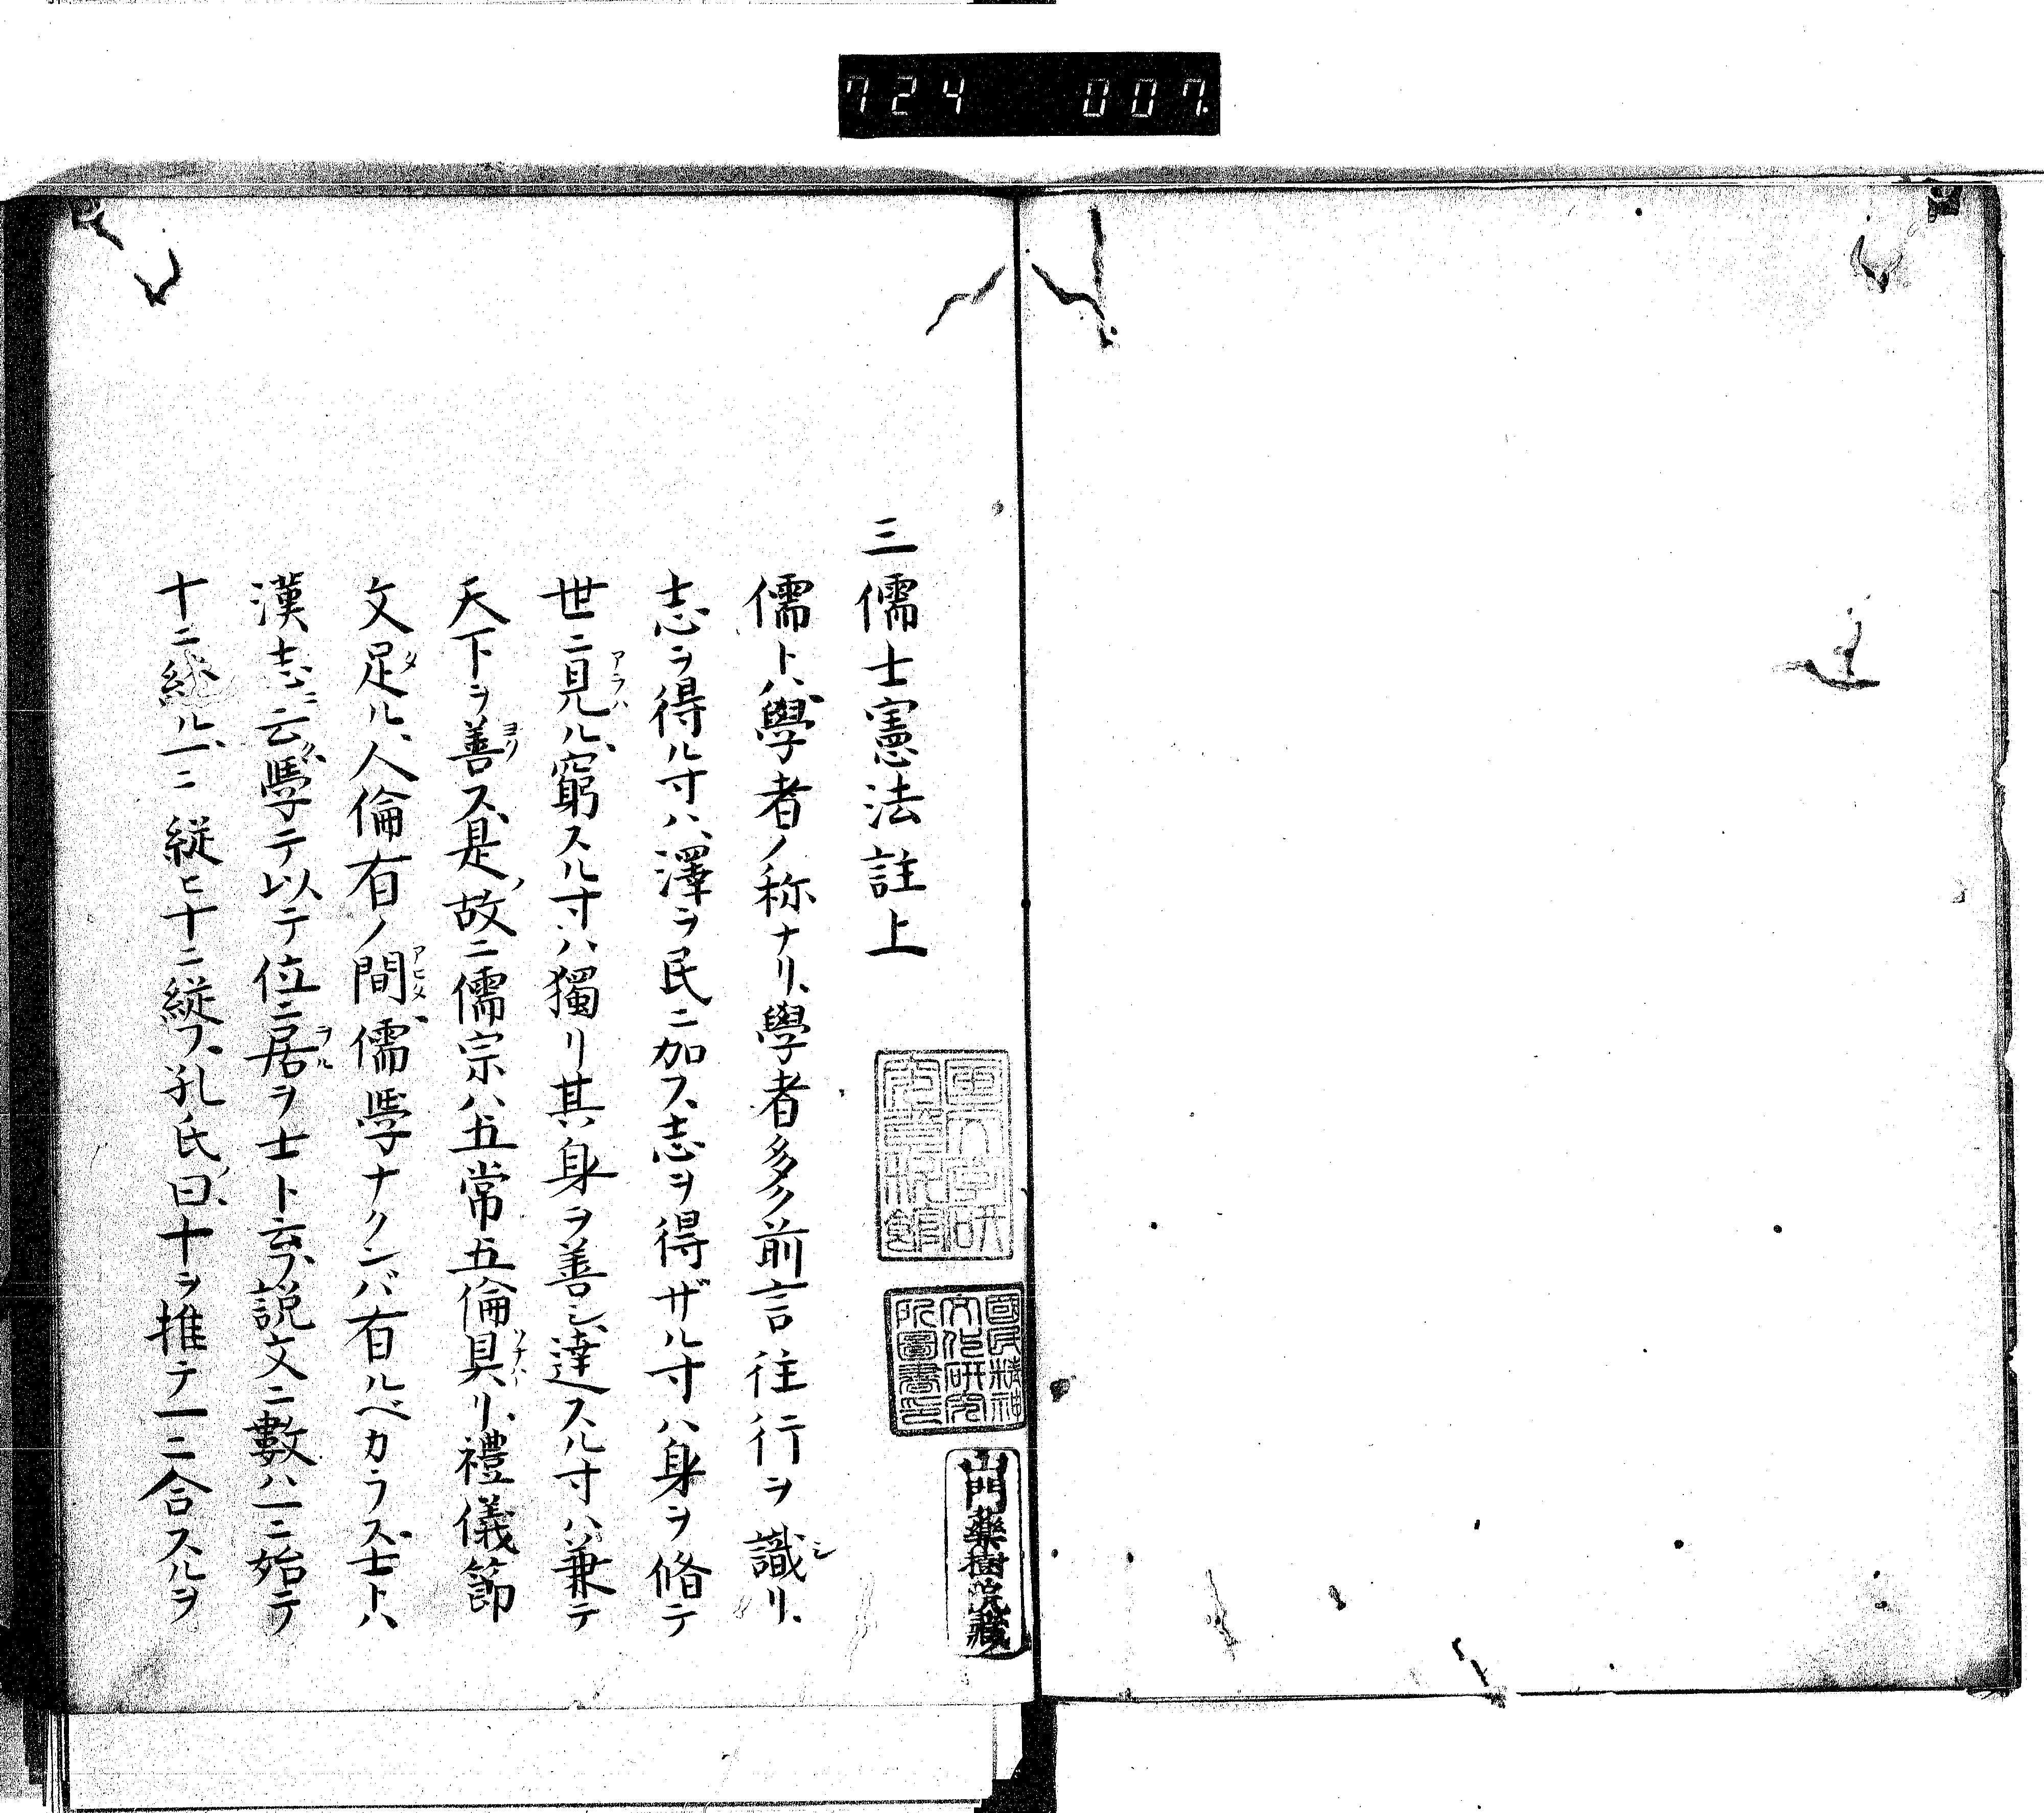 724 007
三儒士憲法註上
儒トハ學者ノ称ナリ、學者多ク前言往行ヲ識リ、
志ヲ得ル寸ハ、澤ヲ民ニ加フ、志ヲ得ザル寸ハ身ヲ脩テ
世ニ見ル、窮スル寸ハ獨リ其身ヲ善シ、達スル寸ハ兼テ
天下ヲ善ス、是故ニ儒宗ハ五常五倫具リ、禮儀節
文足ル、人倫有ノ間、儒學ナクンバ有ルベカラズ、士トハ、
漢志ニ云、學テ以テ位ニ居ヲ士ト云フ、説文ニ數ハ一ニ始テ
十ニ終ル、一ニ縦ヒ十ニ縦フ、孔氏曰、十ヲ推テ一ニ合スルヲ
國民精神文化研究所圖書印
山門藥樹院藏